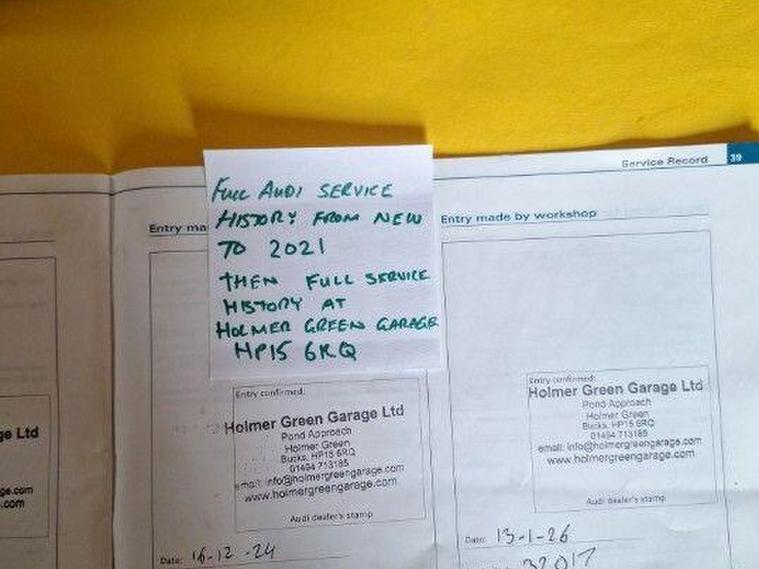 Service Record 39
FULL AUDI SERVICE
HISTORY FROM NEW
TO 2021
THEN FULL SERVICE
HISTORY AT
HOLMER GREEN GARAGE
HP15 6RQ
Entry ma
Entry made by workshop
ge Ltd
ge.com
.com
Entry confirmed:
Holmer Green Garage Ltd
Pond Approach
Holmer Green
Bucks, HP15 6RQ
01494 713185
email: info@holmergreengarage.com
www.holmergreengarage.com
Audi dealer's stamp
Date: 16-12-24
Entry confirmed:
Holmer Green Garage Ltd
Pond Approach
Holmer Green
Bucks, HP15 6RQ
01494 713185
email: info@holmergreengarage.com
www.holmergreengarage.com
Audi dealer's stamp
Date: 13-1-26
32017